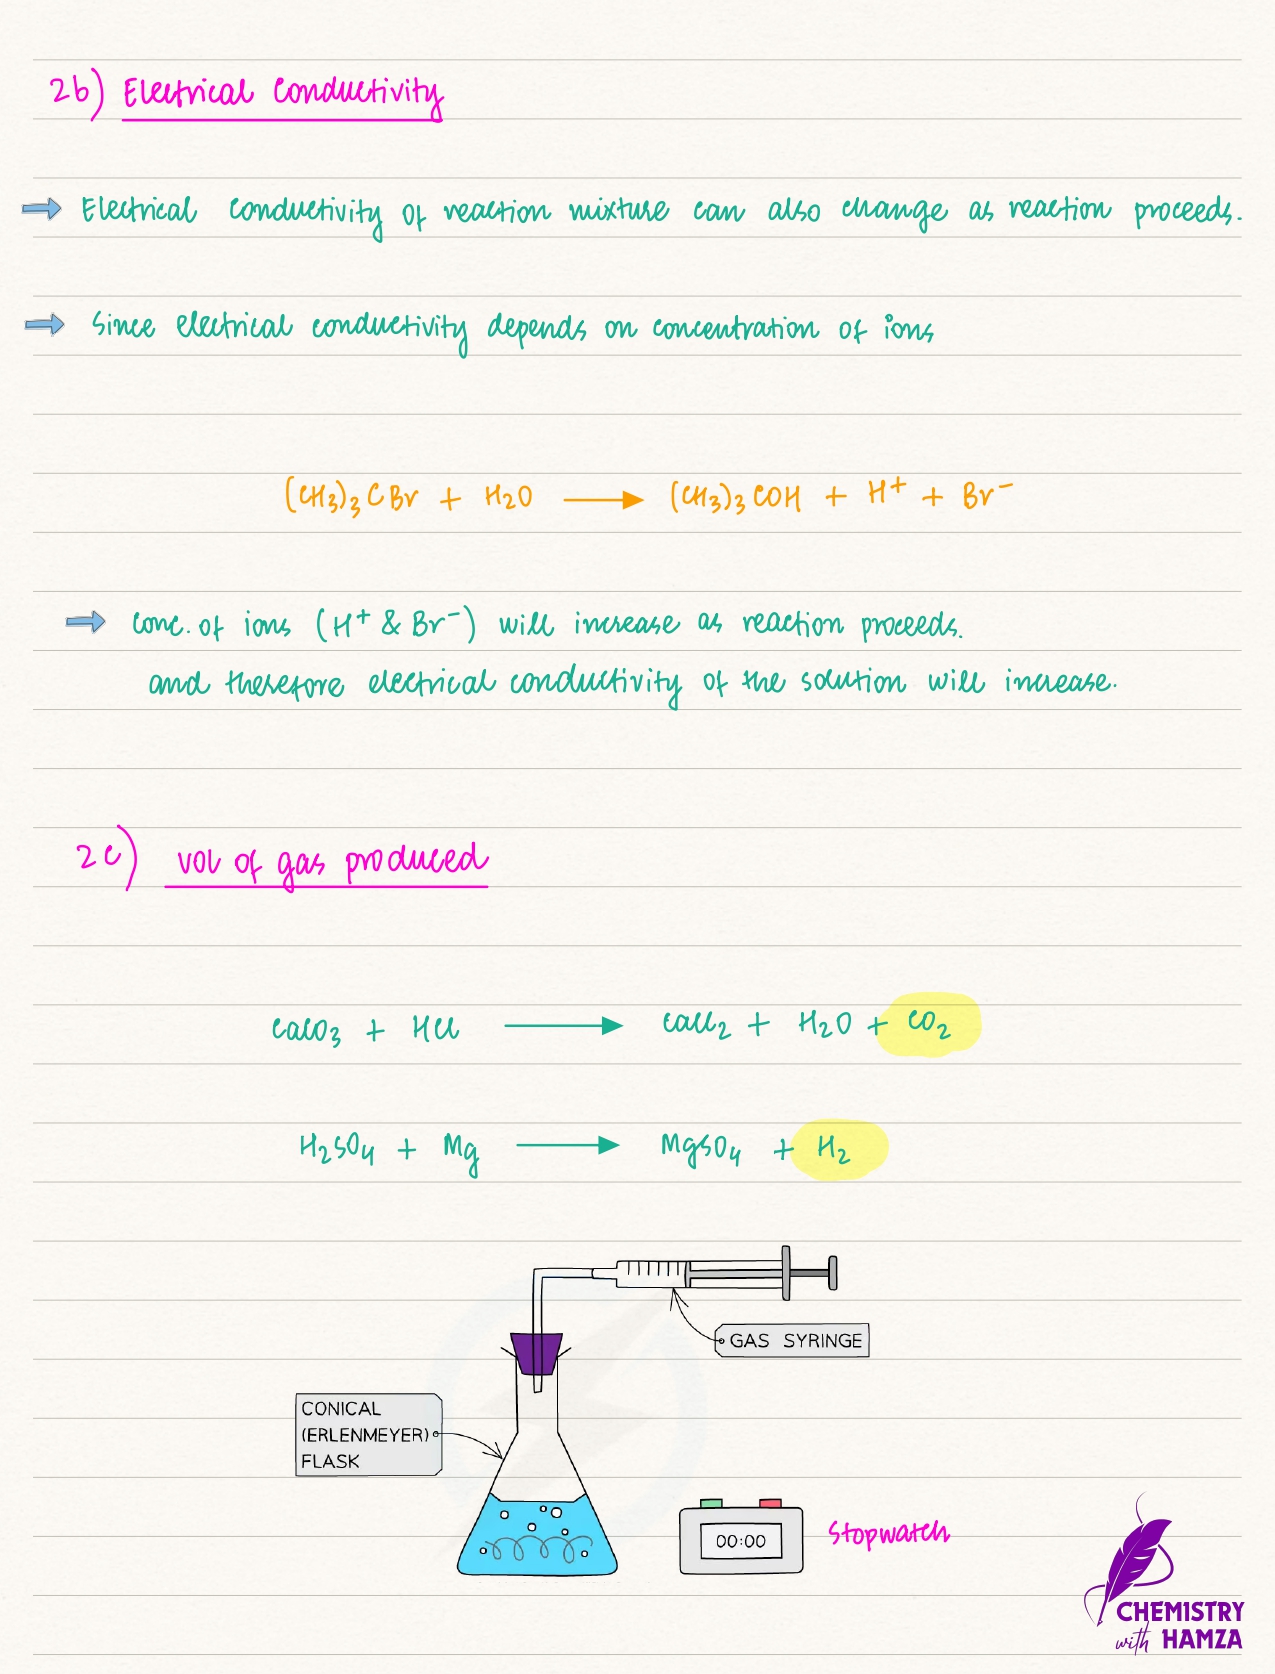 2b) Electrical Conductivity
Electrical conductivity of reaction mixture can also change as reaction proceeds.
Since electrical conductivity depends on concentration of ions
(CH3)3CBr + H2O → (CH3)3COH + H+ + Br-
conc. of ions (H+ & Br-) will increase as reaction proceeds.
and therefore electrical conductivity of the solution will increase.
2c) vol of gas produced
CaCO3 + HCl → CaCl2 + H2O + CO2
H2SO4 + Mg → MgSO4 + H2
GAS SYRINGE
CONICAL
(ERLENMEYER)
FLASK
00:00
Stopwatch
CHEMISTRY
with HAMZA